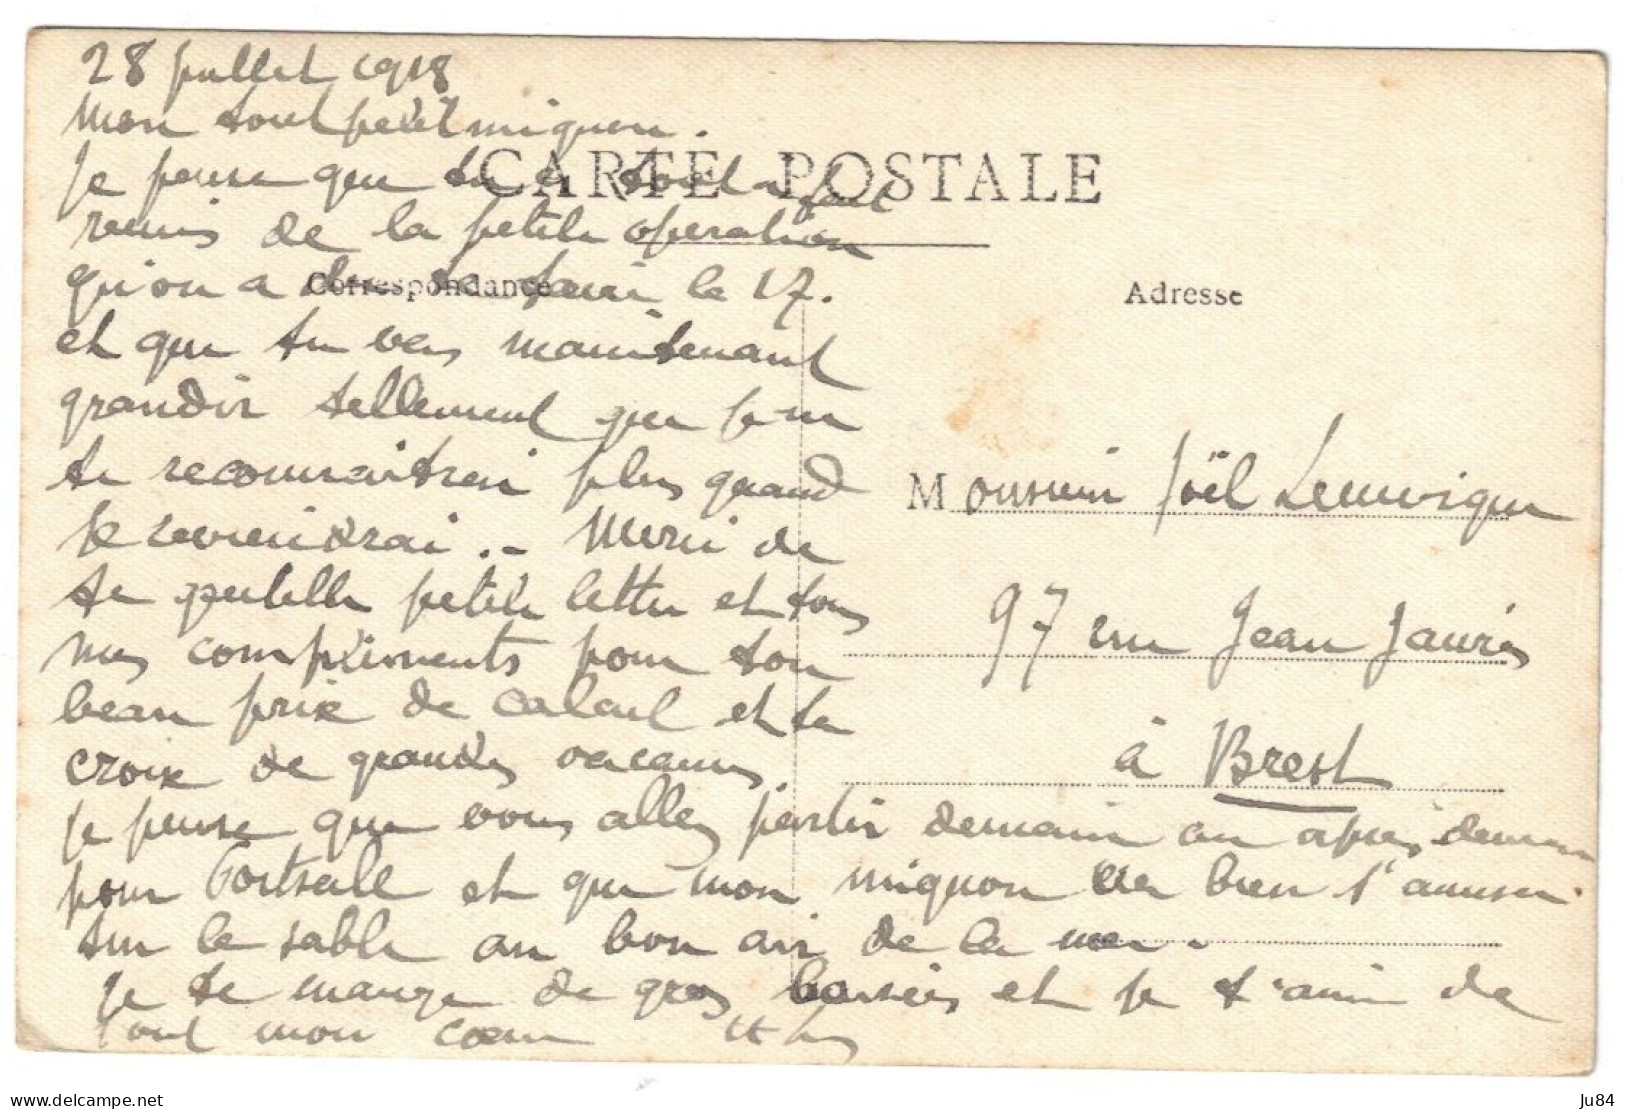 28 juillet 1918
Mon tout petit mignon.
CARTE POSTALE
Je pense que tu es tout à fait
remis de la petite operation
qu'on a du te faire le 17.
Correspondance
Adresse
et que tu vas maintenant
grandir tellement que je ne
te reconnaitrai plus quand
je reviendrai. - Merci de
ta gentille petite lettre et tous
mes compliments pour ton
beau prix de calcul et ta
croix de grandes vacances.
Monsieur Joël
97 rue Jean Jaurès
à Brest
Je pense que vous allez partir demain ou après demain
pour Portsall et que mon mignon va bien s'amuser
sur le sable au bon air de la mer.
Je te mange de gros baisers et je t'aime de
tout mon cœur
delcampe.net
Ju84